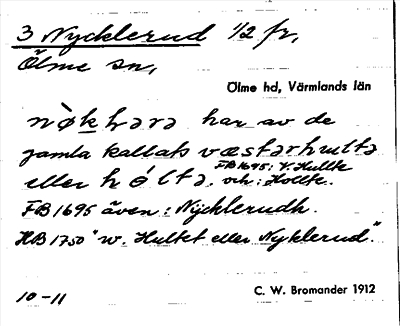 3 Nycklerud 1/2 fr,
Ölme sn,
Ölme hd, Värmlands län
nø̀kɫərə har av de
gamla kallats væstərhɯltə
FB 1695: V. Hullte
eller hóltə. och: Hollte.
FB 1695 även: Nÿcklerudh.
HB 1750 "w. Hultet eller Nyklerud."
10-11
C. W. Bromander 1912